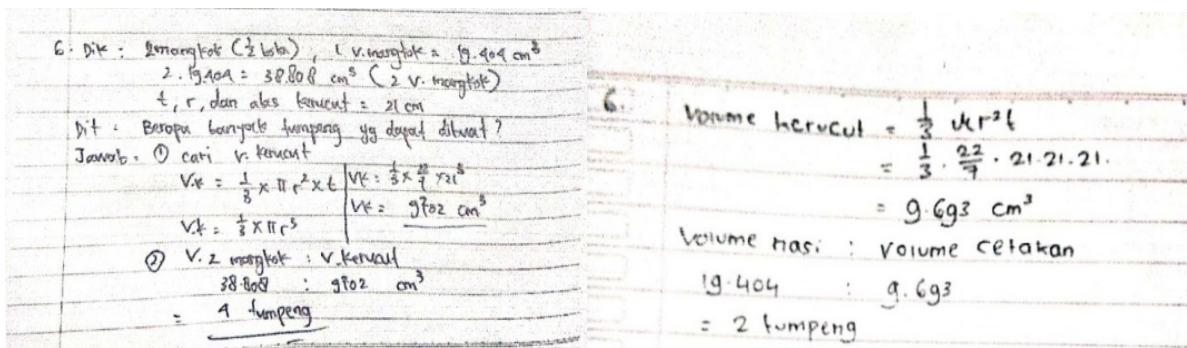 6. Dik : 2 mangkok (½ bola), 1 v. mangkok = 19.404 cm³
2 . 19.404 = 38.808 cm³ (2 v. mangkok)
t, r, dan alas kerucut = 21 cm
Dit : Berapa banyak tumpeng yg dapat dibuat?
Jawab : ① cari v. kerucut
V.k = ⅓ x π r² x t
Vk = ⅓ x 22/7 x 21³
Vk = 9702 cm³
V.k = ⅓ x π r³
② V. 2 mangkok : v. kerucut
38.808 : 9702 cm³
= 4 tumpeng
6.
Volume kerucut = ⅓ πr²t
= ⅓ . 22/7 . 21.21.21.
= 9.693 cm³
Volume nasi : volume cetakan
19.404 : 9.693
= 2 tumpeng